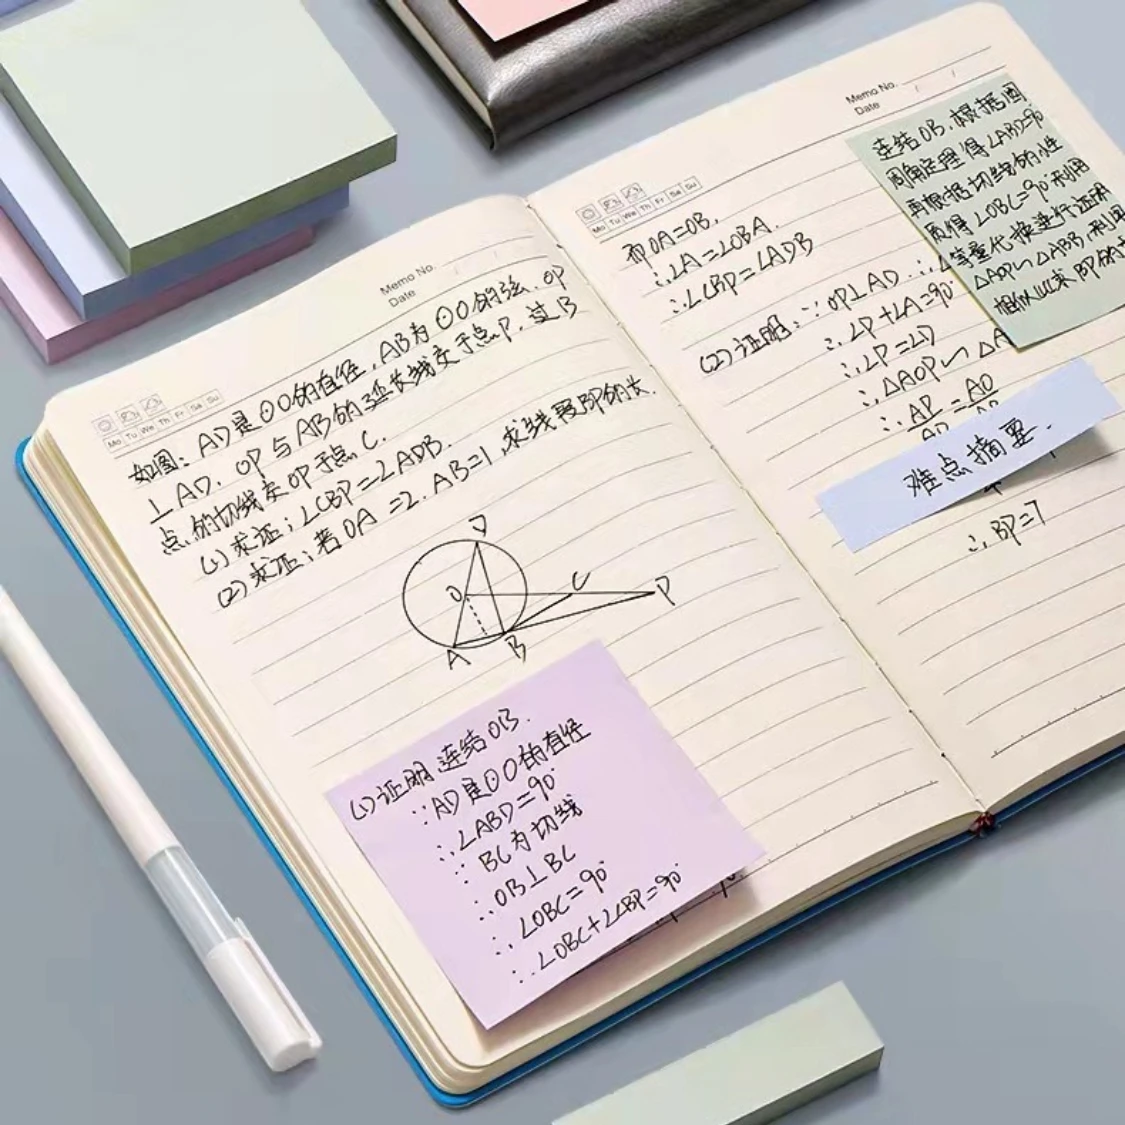 Memo No.
Date
Mo Tu We Th Fr Sa Su
如图：AD是⊙O的直径，AB为⊙O的弦，OP
⊥AD，OP与AB的延长线交于点P，过B
点的切线交OP于点C.
(1)求证：∠CBP=∠ADB.
(2)求证：若OA=2，AB=1，求线段BP的长.
D
O
C
P
A
B
(1)证明，连结OB.
∵AD是⊙O的直径
∴∠ABD=90°
∵BC为切线
∴OB⊥BC
∴∠OBC=90°
∴∠OBC+∠CBP=90°
Memo No.
Date
Mo Tu We Th Fr Sa Su
而OA=OB，
∴∠A=∠OBA.
∴∠CBP=∠ADB
(2)证明：∵OP⊥AD
∴∠P+∠A=90°
∴∠P=∠D
∴△AOP∽△A
∴AP=AO
AD
∴BP=7
连结OB，根据圆
周角定理得∠ABD=90°
再根据切线的性
质得∠OBC=90°利用
等量代换进行证明
△AOP∽△ABB，利用
相似比求BP的
难点摘要.